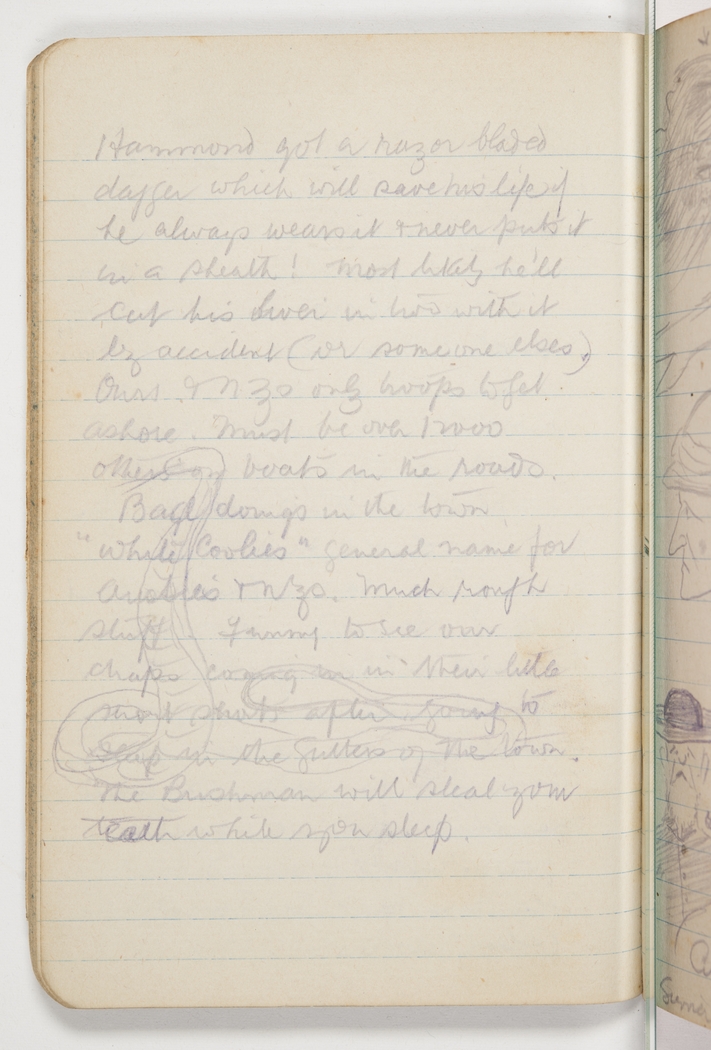 Hammond got a razor bladed
dagger which will save his life if
he always wears it & never puts it
in a sheath! Most likely he'll
cut his liver in two with it
by accident (or someone elses)
Ours & NZs only troops to get
ashore. Must be over 12000
others on boats in the roads.
Bad doings in the town
"White Coolies" general name for
Aussies & NZs. Much rough
stuff. Funny to see our
chaps coming in in their little
short shirts after going to
sleep in the gutters of the town.
The Bushman will steal your
teeth while you sleep.